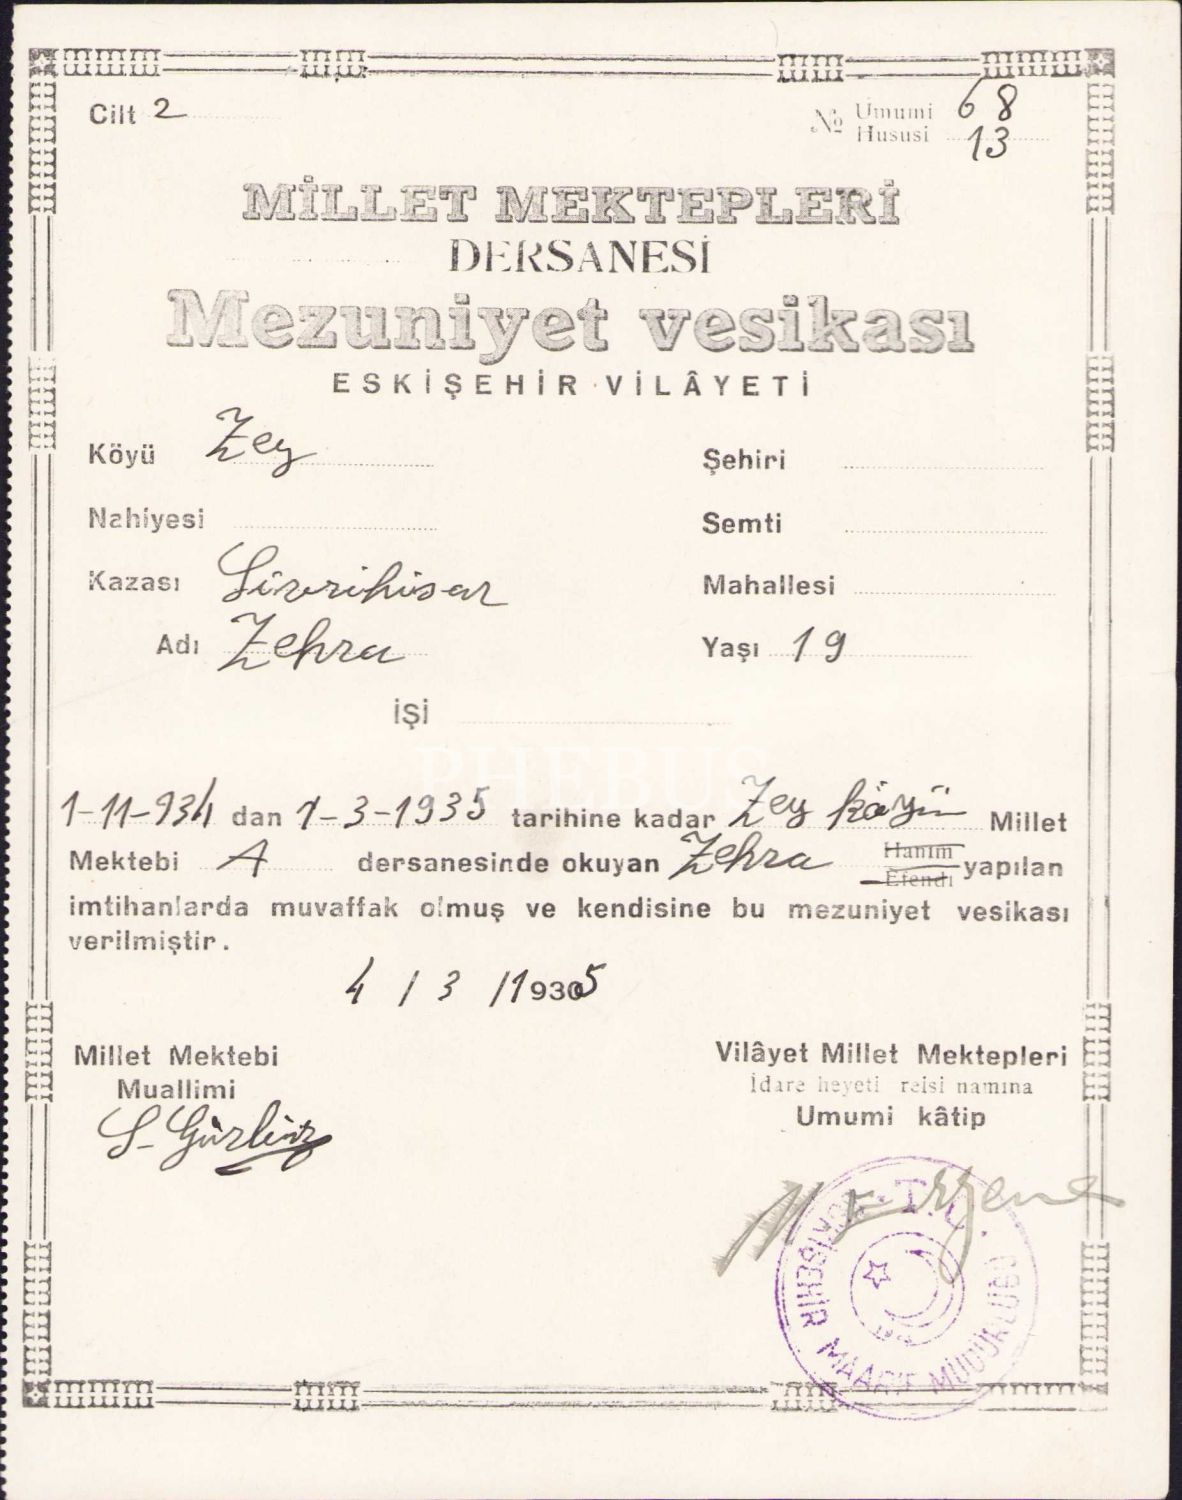 Cilt 2
№ Umumi 68
Hususi 13
MİLLET MEKTEPLERİ
DERSANESİ
Mezuniyet vesikası
ESKİŞEHİR VİLÂYETİ
Köyü Zey
Şehiri
Nahiyesi
Semti
Kazası Sivrihisar
Mahallesi
Adı Zehra
Yaşı 19
İşi
PHEBUS
1-11-934 dan 1-3-1935 tarihine kadar Zey köyün Millet
Mektebi A dersanesinde okuyan Zehra Hanım Efendi yapılan
imtihanlarda muvaffak olmuş ve kendisine bu mezuniyet vesikası
verilmiştir.
4 / 3 / 19305
Millet Mektebi
Muallimi
Vilâyet Millet Mektepleri
İdare heyeti reisi namına
Umumi kâtip
T.C.
ESKİŞEHİR MAARİF MÜDÜRLÜĞÜ